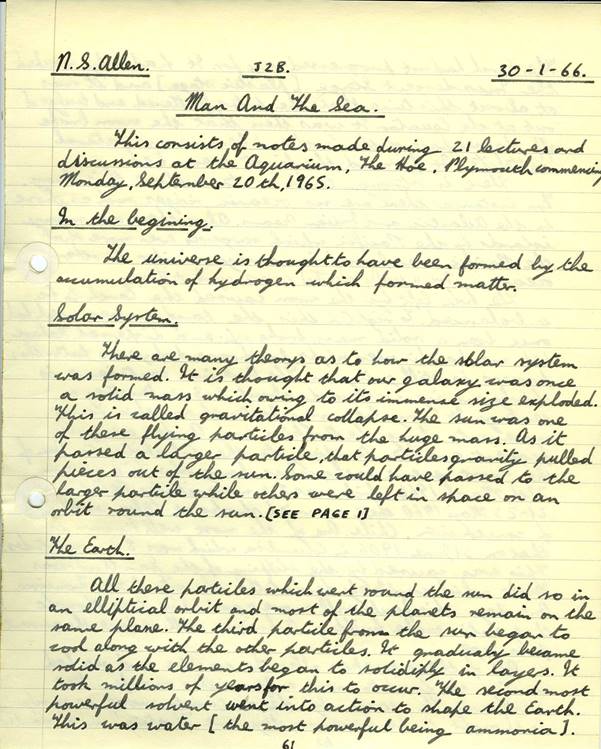 N.S. Allen. J2B. 30-1-66.
Man And The Sea.
This consists of notes made during 21 lectures and
discussions at the Aquarium, The Hoe, Plymouth commencing
Monday, September 20th, 1965.
In the begining.
The universe is thought to have been formed by the
accumulation of hydrogen which formed matter.
Solar System.
There are many theorys as to how the solar system
was formed. It is thought that our galaxy was once
a solid mass which owing to its immense size exploded.
This is called gravitational collapse. The sun was one
of these flying particles from the huge mass. As it
passed a larger particle, that particles gravity pulled
pieces out of the sun. Some could have passed to the
larger particle while others were left in space on an
orbit round the sun. [SEE PAGE 1]
The Earth.
All these particles which went round the sun did so in
an elliptical orbit and most of the planets remain on the
same plane. The third particle from the sun began to
cool along with the other particles. It gradualy became
solid as the elements began to solidify in layers. It
took millions of years for this to occur. The second most
powerful solvent went into action to shape the Earth.
This was water [the most powerful being ammonia].
61